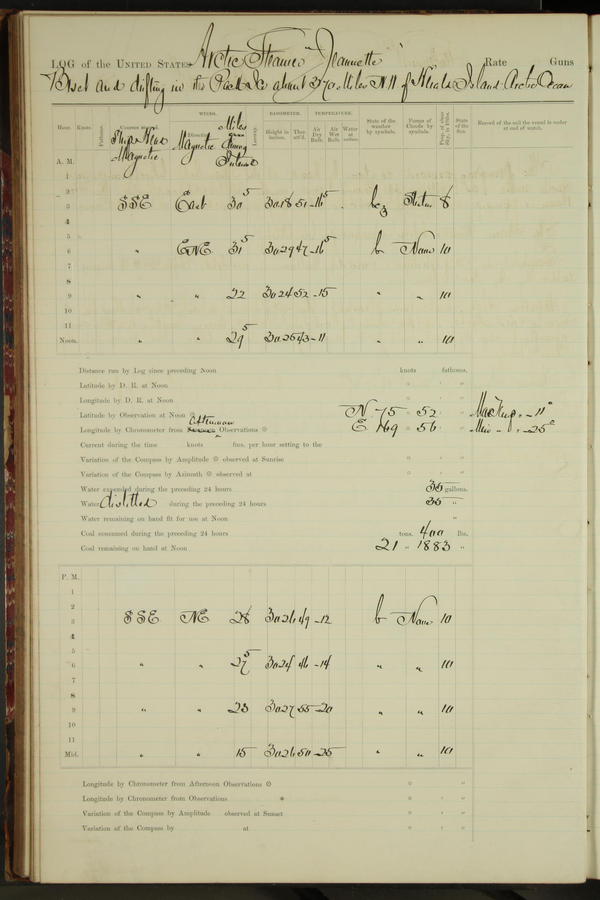 LOG of the UNITED STATES Arctic Steamer "Jeannette" Rate Guns
Beset and drifting in the Pack Ice about 370 Miles N.W of Herald Island Arctic Ocean
WINDS. BAROMETER. TEMPERATURE.
Hour. Knots. Fathoms. Courses steered. Ship's Head Magnetic Direction. Magnetic Miles Leeway. Height in inches. Ther. att'd. Air Dry Bulb. Air Wet Bulb. Water at surface. State of the weather by symbols. Forms of Clouds by symbols. State of the Sea. Record of the sail the vessel is under at end of watch.
A. M.
1
2
3 SSE East 30⁵ 30.18 51 -16⁵ bcz Stratus 8
4
5
6 " ENE 31⁵ 30.29 47 -16⁵ b None 10
7
8
9 " " 22 30.24 52 -15 " " 10
10
11
Noon. " " 29⁵ 30.26 43 -11 " " 10
Distance run by Log since preceding Noon knots fathoms.
Latitude by D. R. at Noon
Longitude by D. R. at Noon
Latitude by Observation at Noon N 75 52 Max Temp. -11°
Longitude by Chronometer from Afternoon Observations E 169 56 Min " -25°
Current during the time knots fms. per hour setting to the
Variation of the Compass by Amplitude observed at Sunrise
Variation of the Compass by Azimuth observed at
Water expended during the preceding 24 hours 35 gallons.
Water distilled during the preceding 24 hours 35 "
Water remaining on hand fit for use at Noon "
Coal consumed during the preceding 24 hours tons. 400 lbs.
Coal remaining on hand at Noon 21 " 1883 "
P. M.
1
2
3 SSE NE 28 30.26 49 -12 b None 10
4
5
6 " " 27⁵ 30.24 46 -14 " " 10
7
8
9 " " 23 30.27 55 -20 " " 10
10
11
Mid. " " 15 30.26 50 -25 " " 10
Longitude by Chronometer from Afternoon Observations
Longitude by Chronometer from Observations
Variation of the Compass by Amplitude observed at Sunset
Variation of the Compass by at